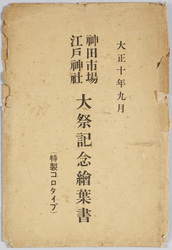 大正十年九月
神田市場
江戸神社
大祭記念繪葉書
(特製コロタイプ)